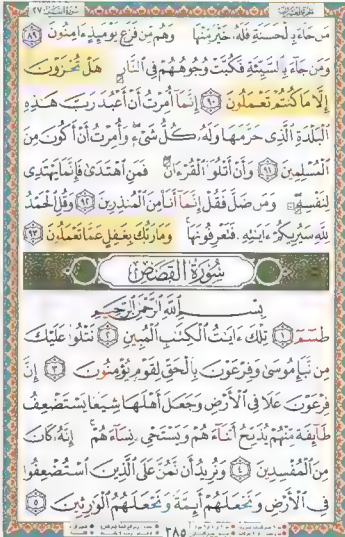 الجزء العشرون سورة النمل ٢٧
مَن جَآءَ بِٱلْحَسَنَةِ فَلَهُۥ خَيْرٌ مِّنْهَا وَهُم مِّن فَزَعٍ يَوْمَئِذٍ ءَامِنُونَ ٨٩
وَمَن جَآءَ بِٱلسَّيِّئَةِ فَكُبَّتْ وُجُوهُهُمْ فِى ٱلنَّارِ هَلْ تُجْزَوْنَ
إِلَّا مَا كُنتُمْ تَعْمَلُونَ ٩٠ إِنَّمَآ أُمِرْتُ أَنْ أَعْبُدَ رَبَّ هَٰذِهِ
ٱلْبَلْدَةِ ٱلَّذِى حَرَّمَهَا وَلَهُۥ كُلُّ شَىْءٍ وَأُمِرْتُ أَنْ أَكُونَ مِنَ
ٱلْمُسْلِمِينَ ٩١ وَأَنْ أَتْلُوَا۟ ٱلْقُرْءَانَ فَمَنِ ٱهْتَدَىٰ فَإِنَّمَا يَهْتَدِى
لِنَفْسِهِۦ وَمَن ضَلَّ فَقُلْ إِنَّمَآ أَنَا۠ مِنَ ٱلْمُنذِرِينَ ٩٢ وَقُلِ ٱلْحَمْدُ
لِلَّهِ سَيُرِيكُمْ ءَايَٰتِهِۦ فَتَعْرِفُونَهَا وَمَا رَبُّكَ بِغَٰفِلٍ عَمَّا تَعْمَلُونَ ٩٣
سُورَةُ القَصَصِ
بِسْمِ ٱللَّهِ ٱلرَّحْمَٰنِ ٱلرَّحِيمِ
طسٓمٓ ١ تِلْكَ ءَايَٰتُ ٱلْكِتَٰبِ ٱلْمُبِينِ ٢ نَتْلُوا۟ عَلَيْكَ
مِن نَّبَإِ مُوسَىٰ وَفِرْعَوْنَ بِٱلْحَقِّ لِقَوْمٍ يُؤْمِنُونَ ٣ إِنَّ
فِرْعَوْنَ عَلَا فِى ٱلْأَرْضِ وَجَعَلَ أَهْلَهَا شِيَعًا يَسْتَضْعِفُ
طَآئِفَةً مِّنْهُمْ يُذَبِّحُ أَبْنَآءَهُمْ وَيَسْتَحْىِۦ نِسَآءَهُمْ إِنَّهُۥ كَانَ
مِنَ ٱلْمُفْسِدِينَ ٤ وَنُرِيدُ أَن نَّمُنَّ عَلَى ٱلَّذِينَ ٱسْتُضْعِفُوا۟
فِى ٱلْأَرْضِ وَنَجْعَلَهُمْ أَئِمَّةً وَنَجْعَلَهُمُ ٱلْوَٰرِثِينَ ٥
٣٨٥